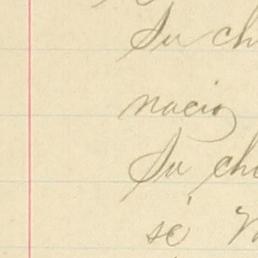 Su ch
nacio
Su che
sé